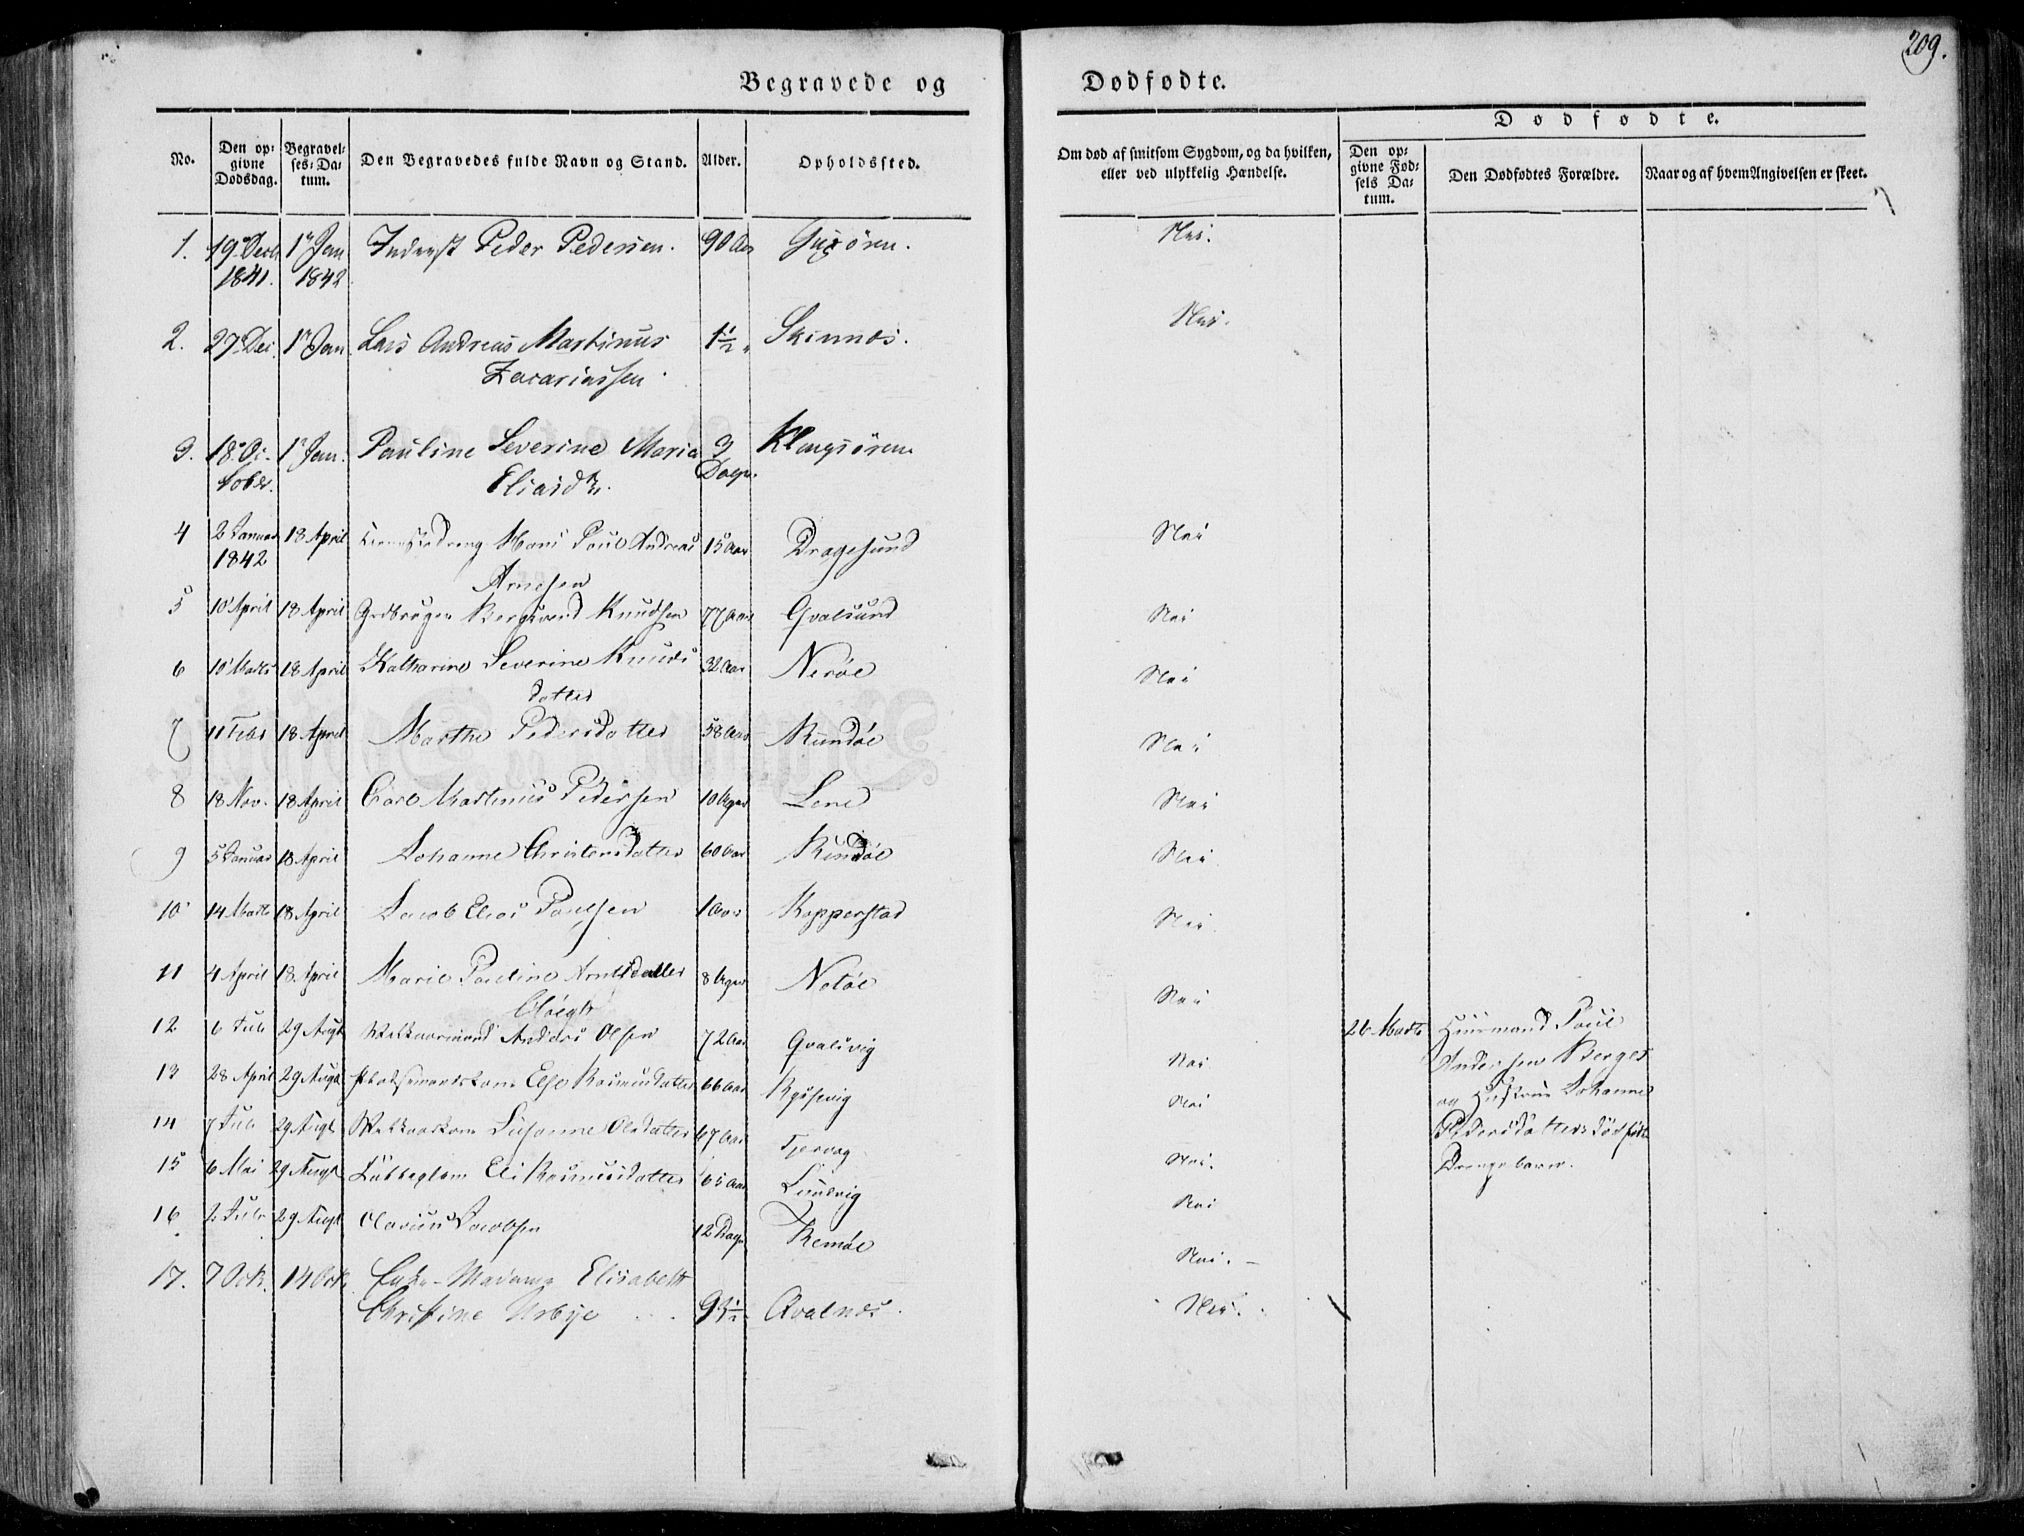 209.
Begravede og Dødfødte.
No.
Den opgivne Dødsdag.
Begravelses-Datum.
Den Begravedes fulde Navn og Stand.
Alder.
Opholdssted.
Om død af smitsom Sygdom, og da hvilken, eller ved ulykkelig Hændelse.
Dødfødte.
Den opgivne Fødsels Datum.
Den Dødfødtes Forældre.
Naar og af hvem Angivelsen er skeet.
1. 19 Decb 1841. 1 Jan 1842 Inderst Peder Pedersen. 90 Aar Nei.
2. 27 Dec 1 Jan Lars Andreas Martinus 1½ Skinnes. Nei.
Zacariassen
3. 18 Oc- 1 Jan. Pauline Severine Maria 3 Klungsøren
tober. Eliasd. Dage.
4 2 Januar 1842 18 April Hans Paul Andreas 15 Aar Dragesund Nei
Arnesen
5 10 April 18 April Knudsen 77 Aar Gvalsund Nei
6 10 Marts 18 April Katharine Severine Knuds 32 Aar Nerøe Nei
datter
7 11 Febr 18 April Marthe Pedersdatter 58 Aar Rundøe Nei
8 18 Nov. 18 April Carl Martinus Pedersen 10 Uger Lene Nei
9 5 Januar 18 April Johanne Christensdatter 60 Aar Rundøe Nei
10 14 Marts 18 April Jacob Elias Paulsen 1 Aar Kopperstad Nei
11 4 April 18 April Marie Pauline Arnesdatter 8 Uger Notøe Nei
12 6 Juli 29 Augt Anders Olsen 72 Aar Qvalsvig Nei
13 28 April 29 Augt Else Rasmusdatter 66 Aar Nei
14 7 Juli 29 Augt Susanne Olsdatter 67 Aar Tjervag Nei.
15 6 Mai 29 Augt Eli Rasmusdatter 65 Aar Nei
16 2 Juli 29 Augt Jacobsen 12 Dage Remøe Nei.
17. 7 Oct. 14 Oct. Enke-Madame Elisabeth
Christine Arbye 93½ Qvalnes. Nei.
26 Marts Huusmand Paul
Andersen Berges
og Hustrue Johanne
Pedersdatters dødfødt
Drengebarn.